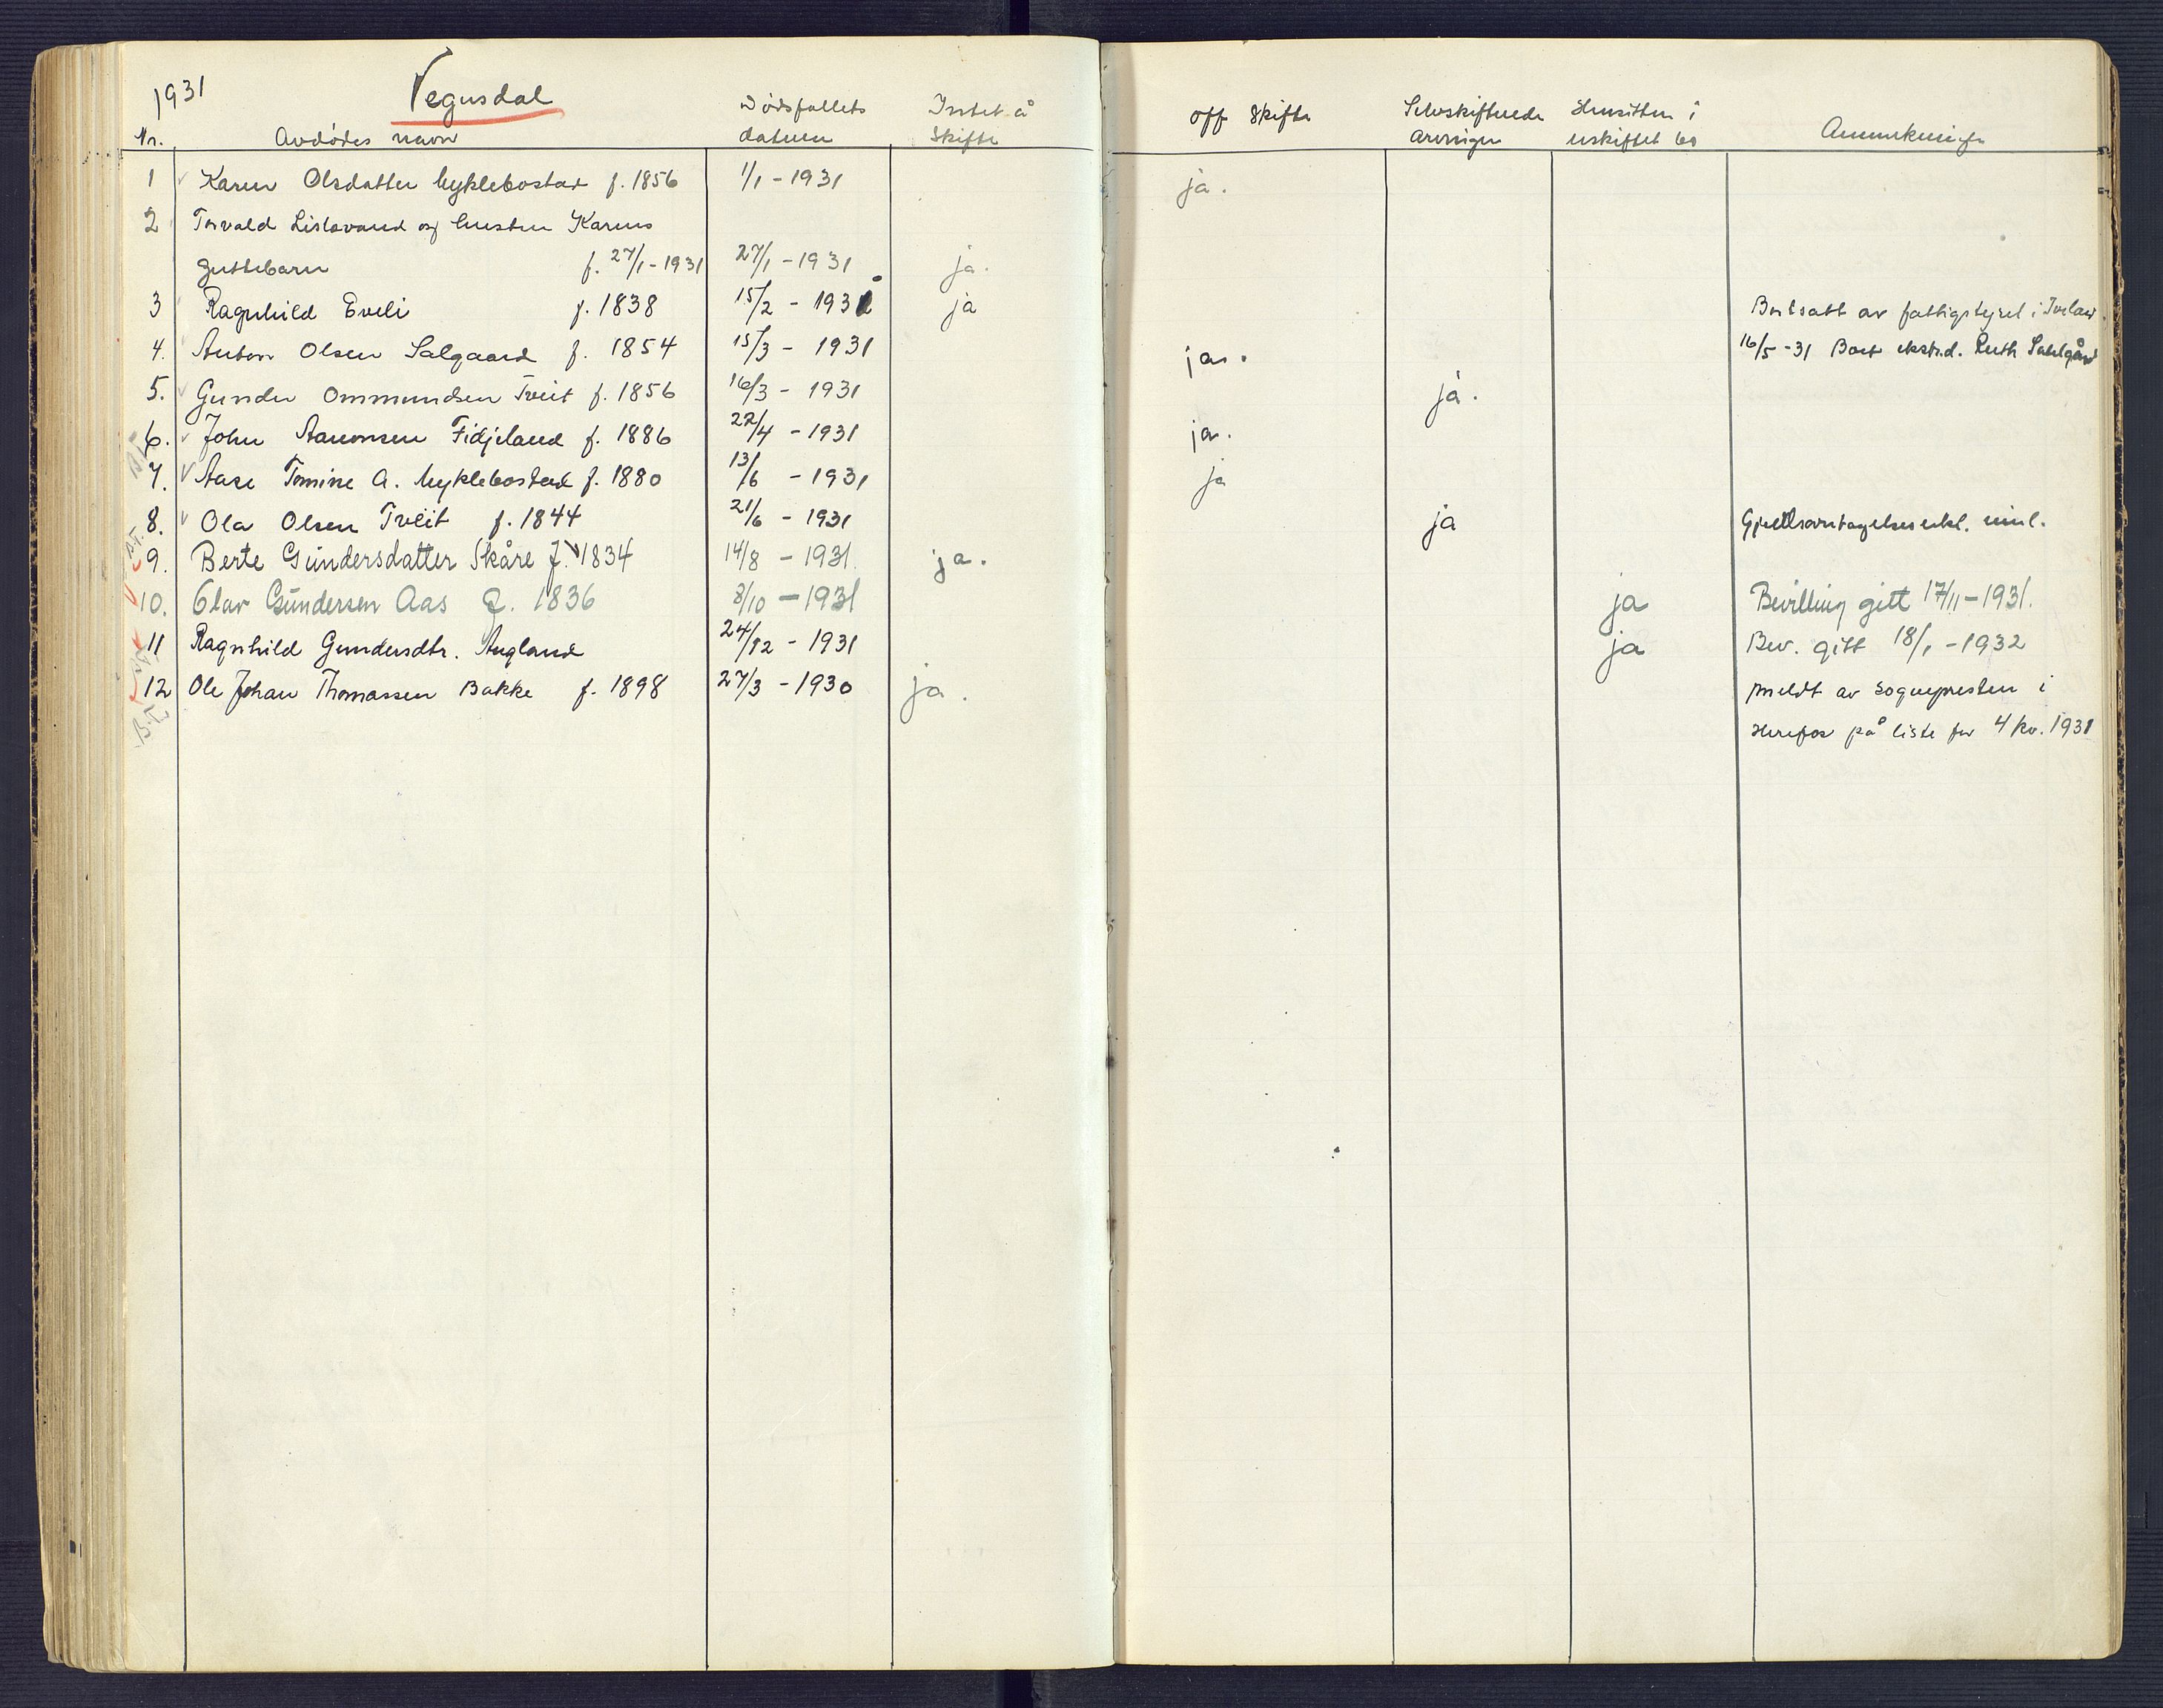 1931 Vegusdal
Nr. Avdødes navn Dødsfallets datum Intet å skifte off skifte Selvskiftende arvinger Hensitten i uskiftet bo Anmerkninger
1 Karen Olsdatter Myklebostad f. 1856 1/1 - 1931 ja.
2 Torvald Lislevand og hustru Karens
guttebarn f. 27/1 - 1931 27/1 - 1931 ja.
3 Ragnhild Eveli f. 1838 15/2 - 1931 ja Bortsatt av fattigstyret i Iveland.
4. Anton Olsen Salgaard f. 1854 15/3 - 1931 ja. 16/5 - 31 Boet ekstrad. Ruth Sahlgård
5. Gunder Ommundsen Tveit f. 1856 16/3 - 1931 ja.
6. John Aanonsen Fidjeland f. 1886 22/4 - 1931 ja.
7. Aase Tomine A. Myklebostad f. 1880 13/6 - 1931 ja
8. Ola Olsen Tveit f. 1844 21/6 - 1931 ja Gjeldsovertagelseserkl. innl.
9. Berte Gundersdatter Skåre f. 1834 14/8 - 1931. ja.
10. Olav Gundersen Aas f. 1836 8/10 - 1931 ja Bevilling gitt 17/11 - 1931.
11 Ragnhild Gundersdtr. Augland 24/12 - 1931 ja Bev. gitt 18/1 - 1932
12 Ole Johan Thomassen Bakke f. 1898 27/3 - 1930 ja. meldt av sognepresten i
Herefos på liste for 4 kv. 1931